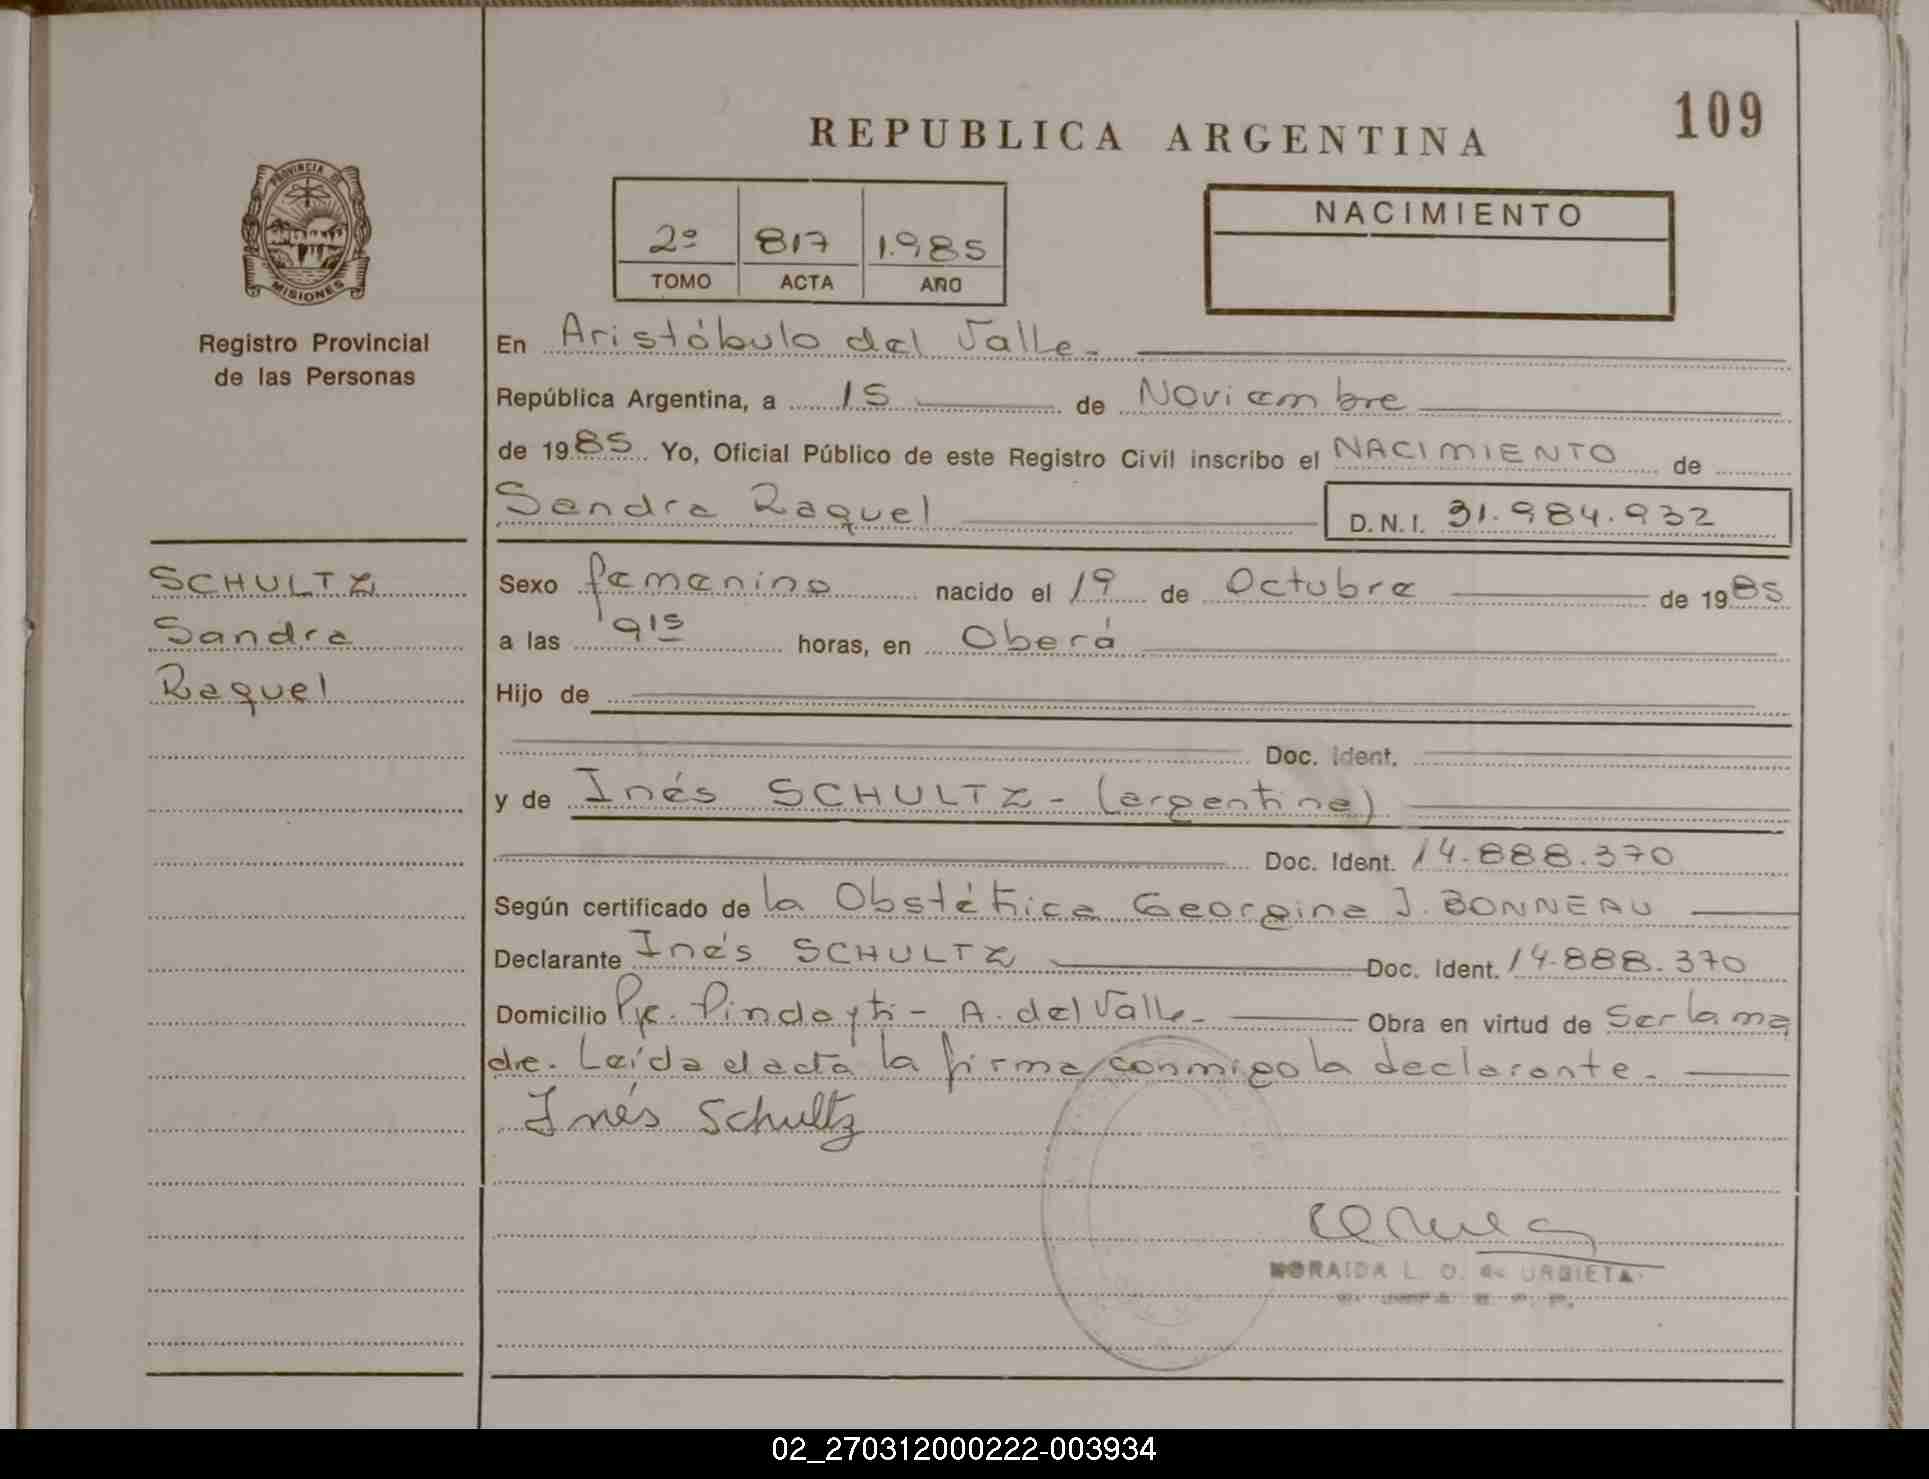 109
REPUBLICA ARGENTINA
PROVINCIA DE
MISIONES
Registro Provincial
de las Personas
2º 817 1.985
TOMO ACTA AÑO
NACIMIENTO
En Aristóbulo del Valle.-
República Argentina, a 15 de Noviembre
de 1985 Yo, Oficial Público de este Registro Civil inscribo el NACIMIENTO de
Sandra Raquel D.N.I. 31.984.932
SCHULTZ
Sandra
Raquel
Sexo femenino nacido el 19 de Octubre de 1985
a las 9 15 horas, en Oberá
Hijo de
Doc. Ident.
y de Inés SCHULTZ - (argentina)
Doc. Ident. 14.888.370
Según certificado de la Obstétrica Georgina J. BONNEAU
Declarante Inés SCHULTZ Doc. Ident. 14.888.370
Domicilio Pje. Pindayti - A. del Valle.- Obra en virtud de Ser la ma
dre. Leída el acta la firma conmigo la declarante.
Inés Schultz
NORAIDA L. O. de URBIETA
02_270312000222-003934